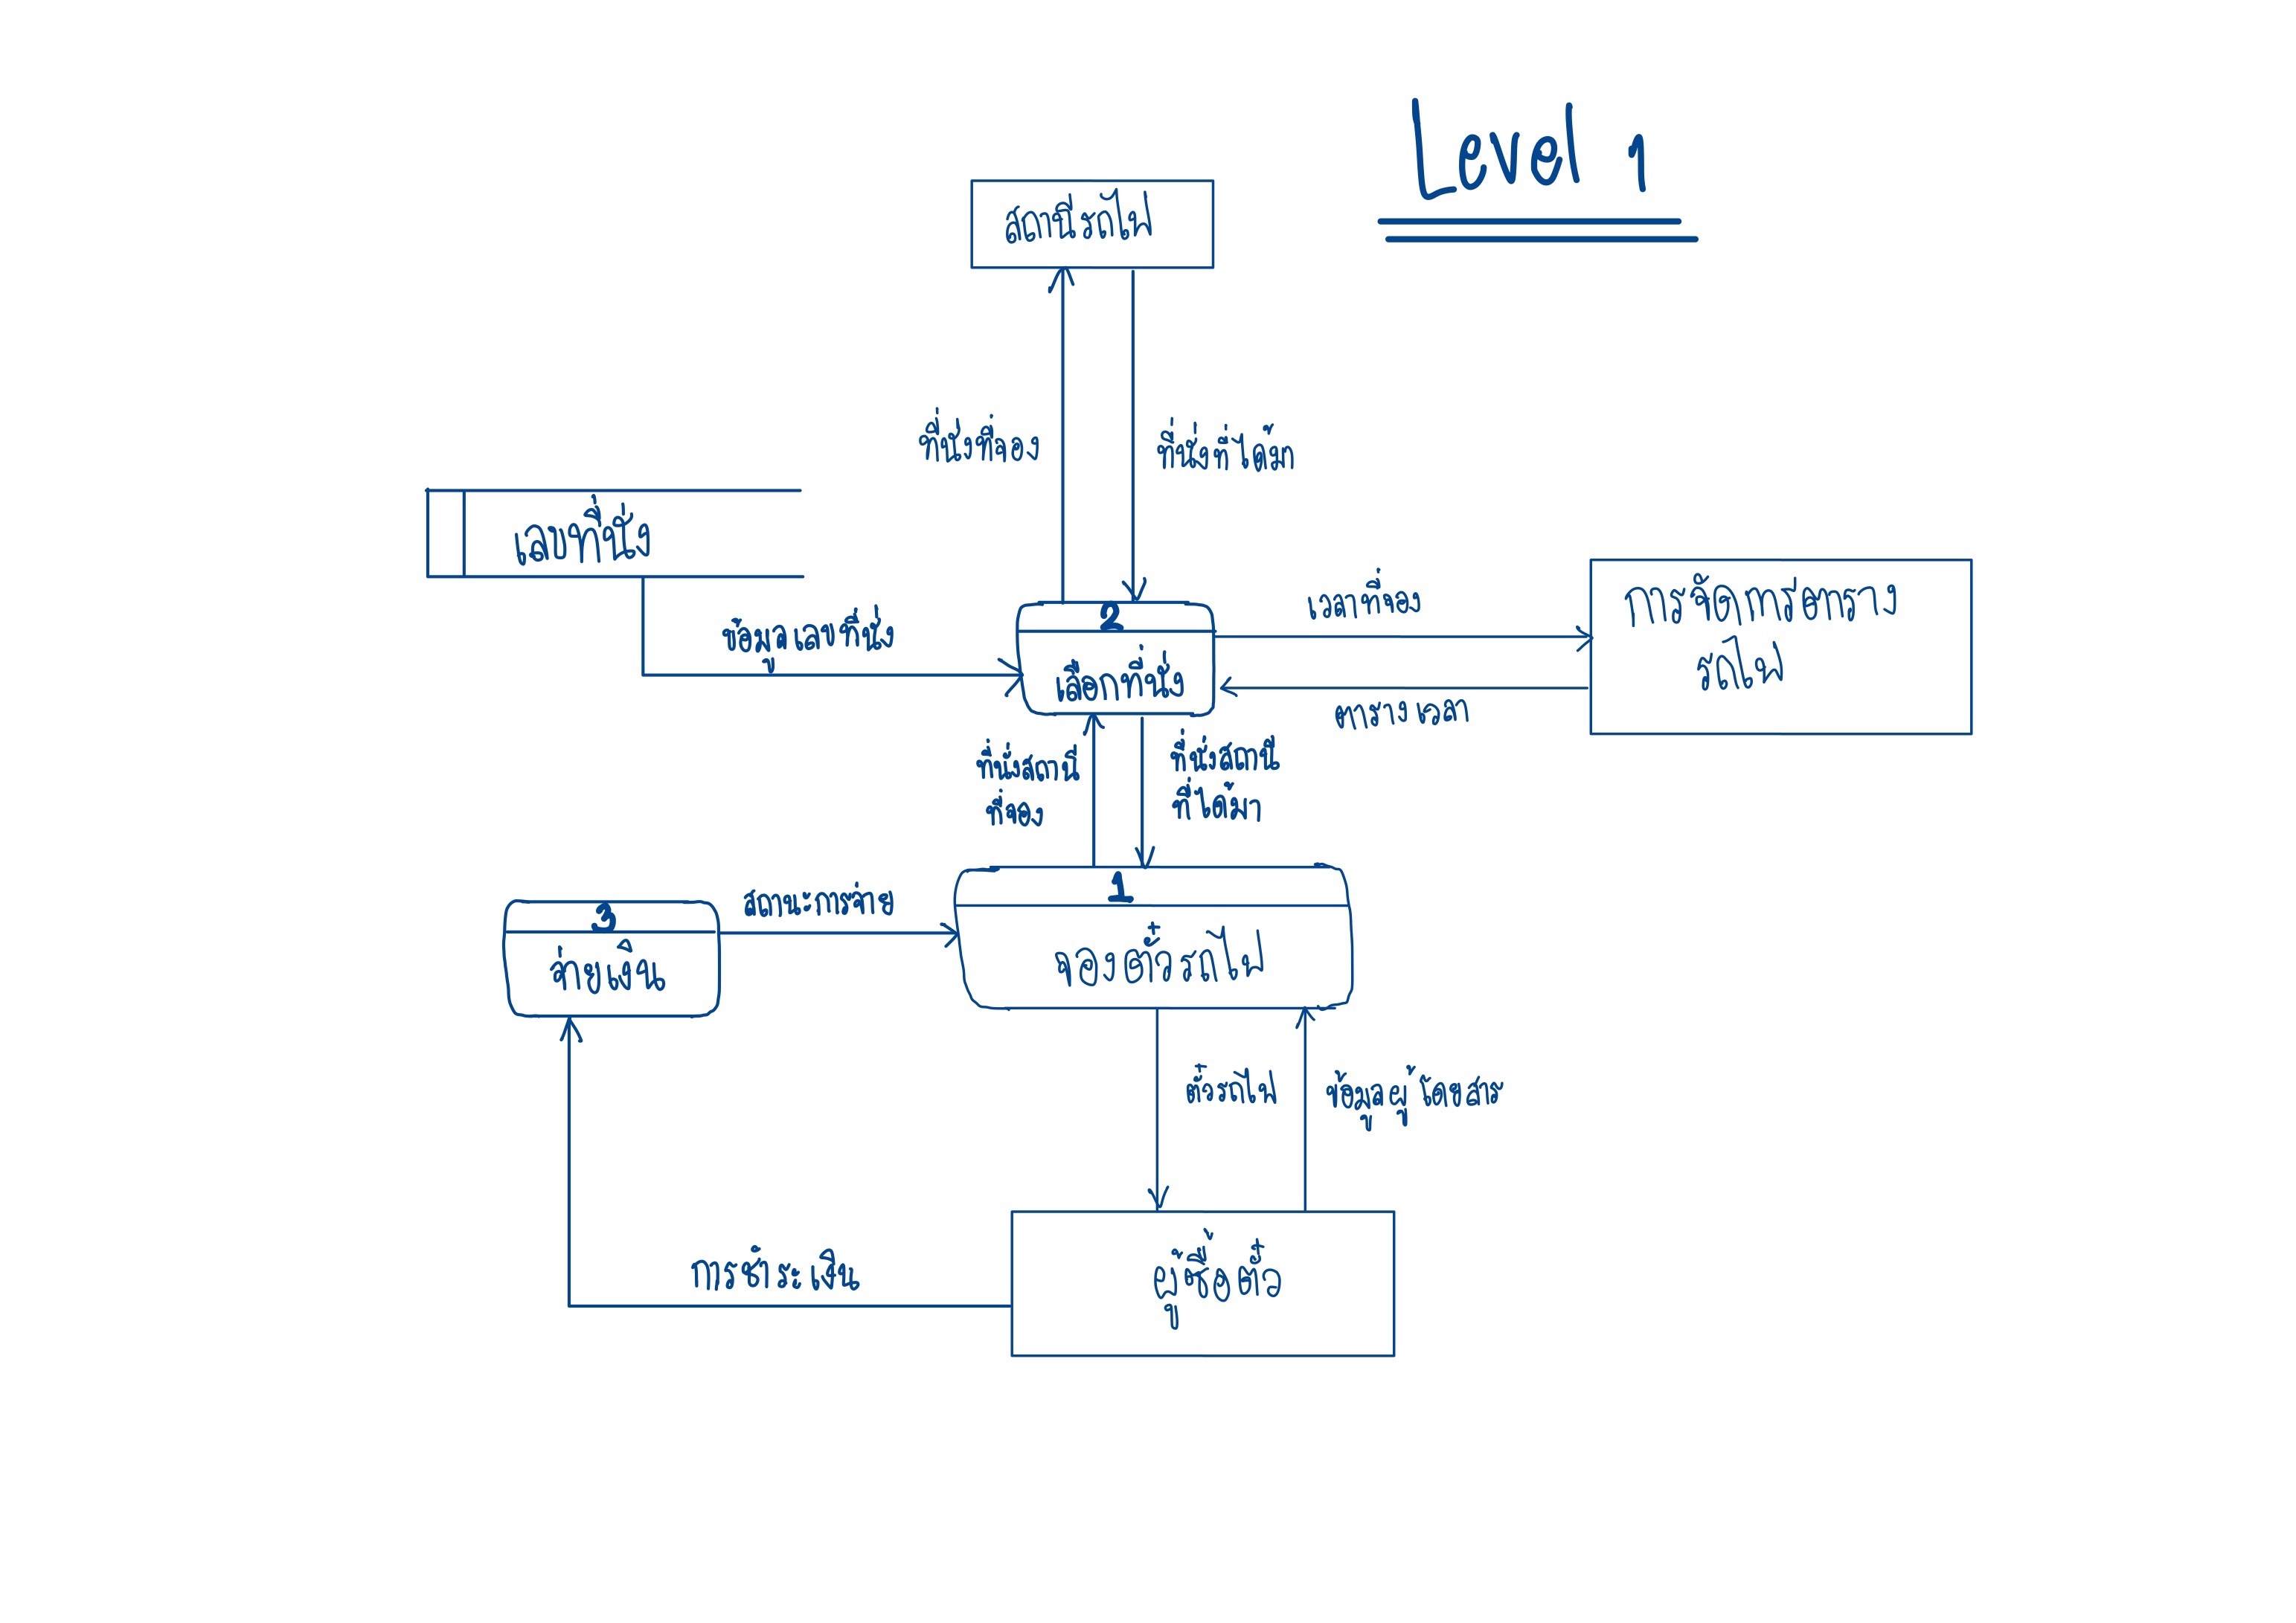 Level 1
สถานีรถไฟ
ที่นั่งที่จอง
ที่นั่งที่ได้มา
เลขที่นั่ง
ข้อมูลเลขที่นั่ง
2
เลือกที่นั่ง
เวลาที่จอง
ตารางเวลา
การจัดการตาราง
รถไฟ
ที่นั่งสถานี
ที่จอง
ที่นั่งสถานี
ที่ได้มา
3
จ่ายเงิน
สถานะการจ่าย
1
จองตั๋วรถไฟ
ตั๋วรถไฟ
ข้อมูลผู้โดยสาร
การชำระเงิน
ผู้ซื้อตั๋ว